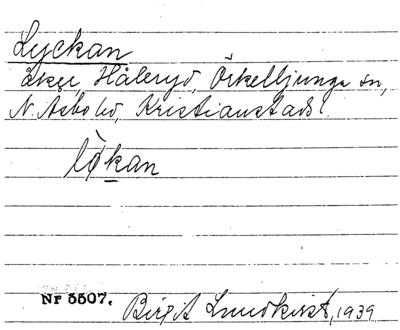 Lyckan
Åker, Håleryd, Örkelljunga sn,
N. Åsbo hd, Kristianstads l.
lökan
Nr 5507. Birgit Lundkvist, 1939